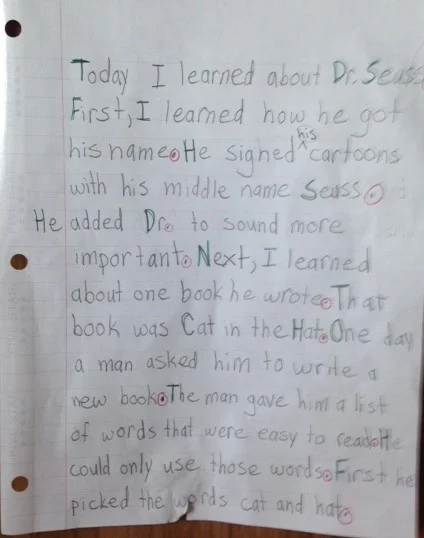 Today I learned about Dr. Seuss
First, I learned how he got
his name. He signed his cartoons
with his middle name Seuss.
He added Dr. to sound more
important. Next, I learned
about one book he wrote. That
book was Cat in the Hat. One day
a man asked him to write a
new book. The man gave him a list
of words that were easy to read. He
could only use those words. First he
picked the words cat and hat.